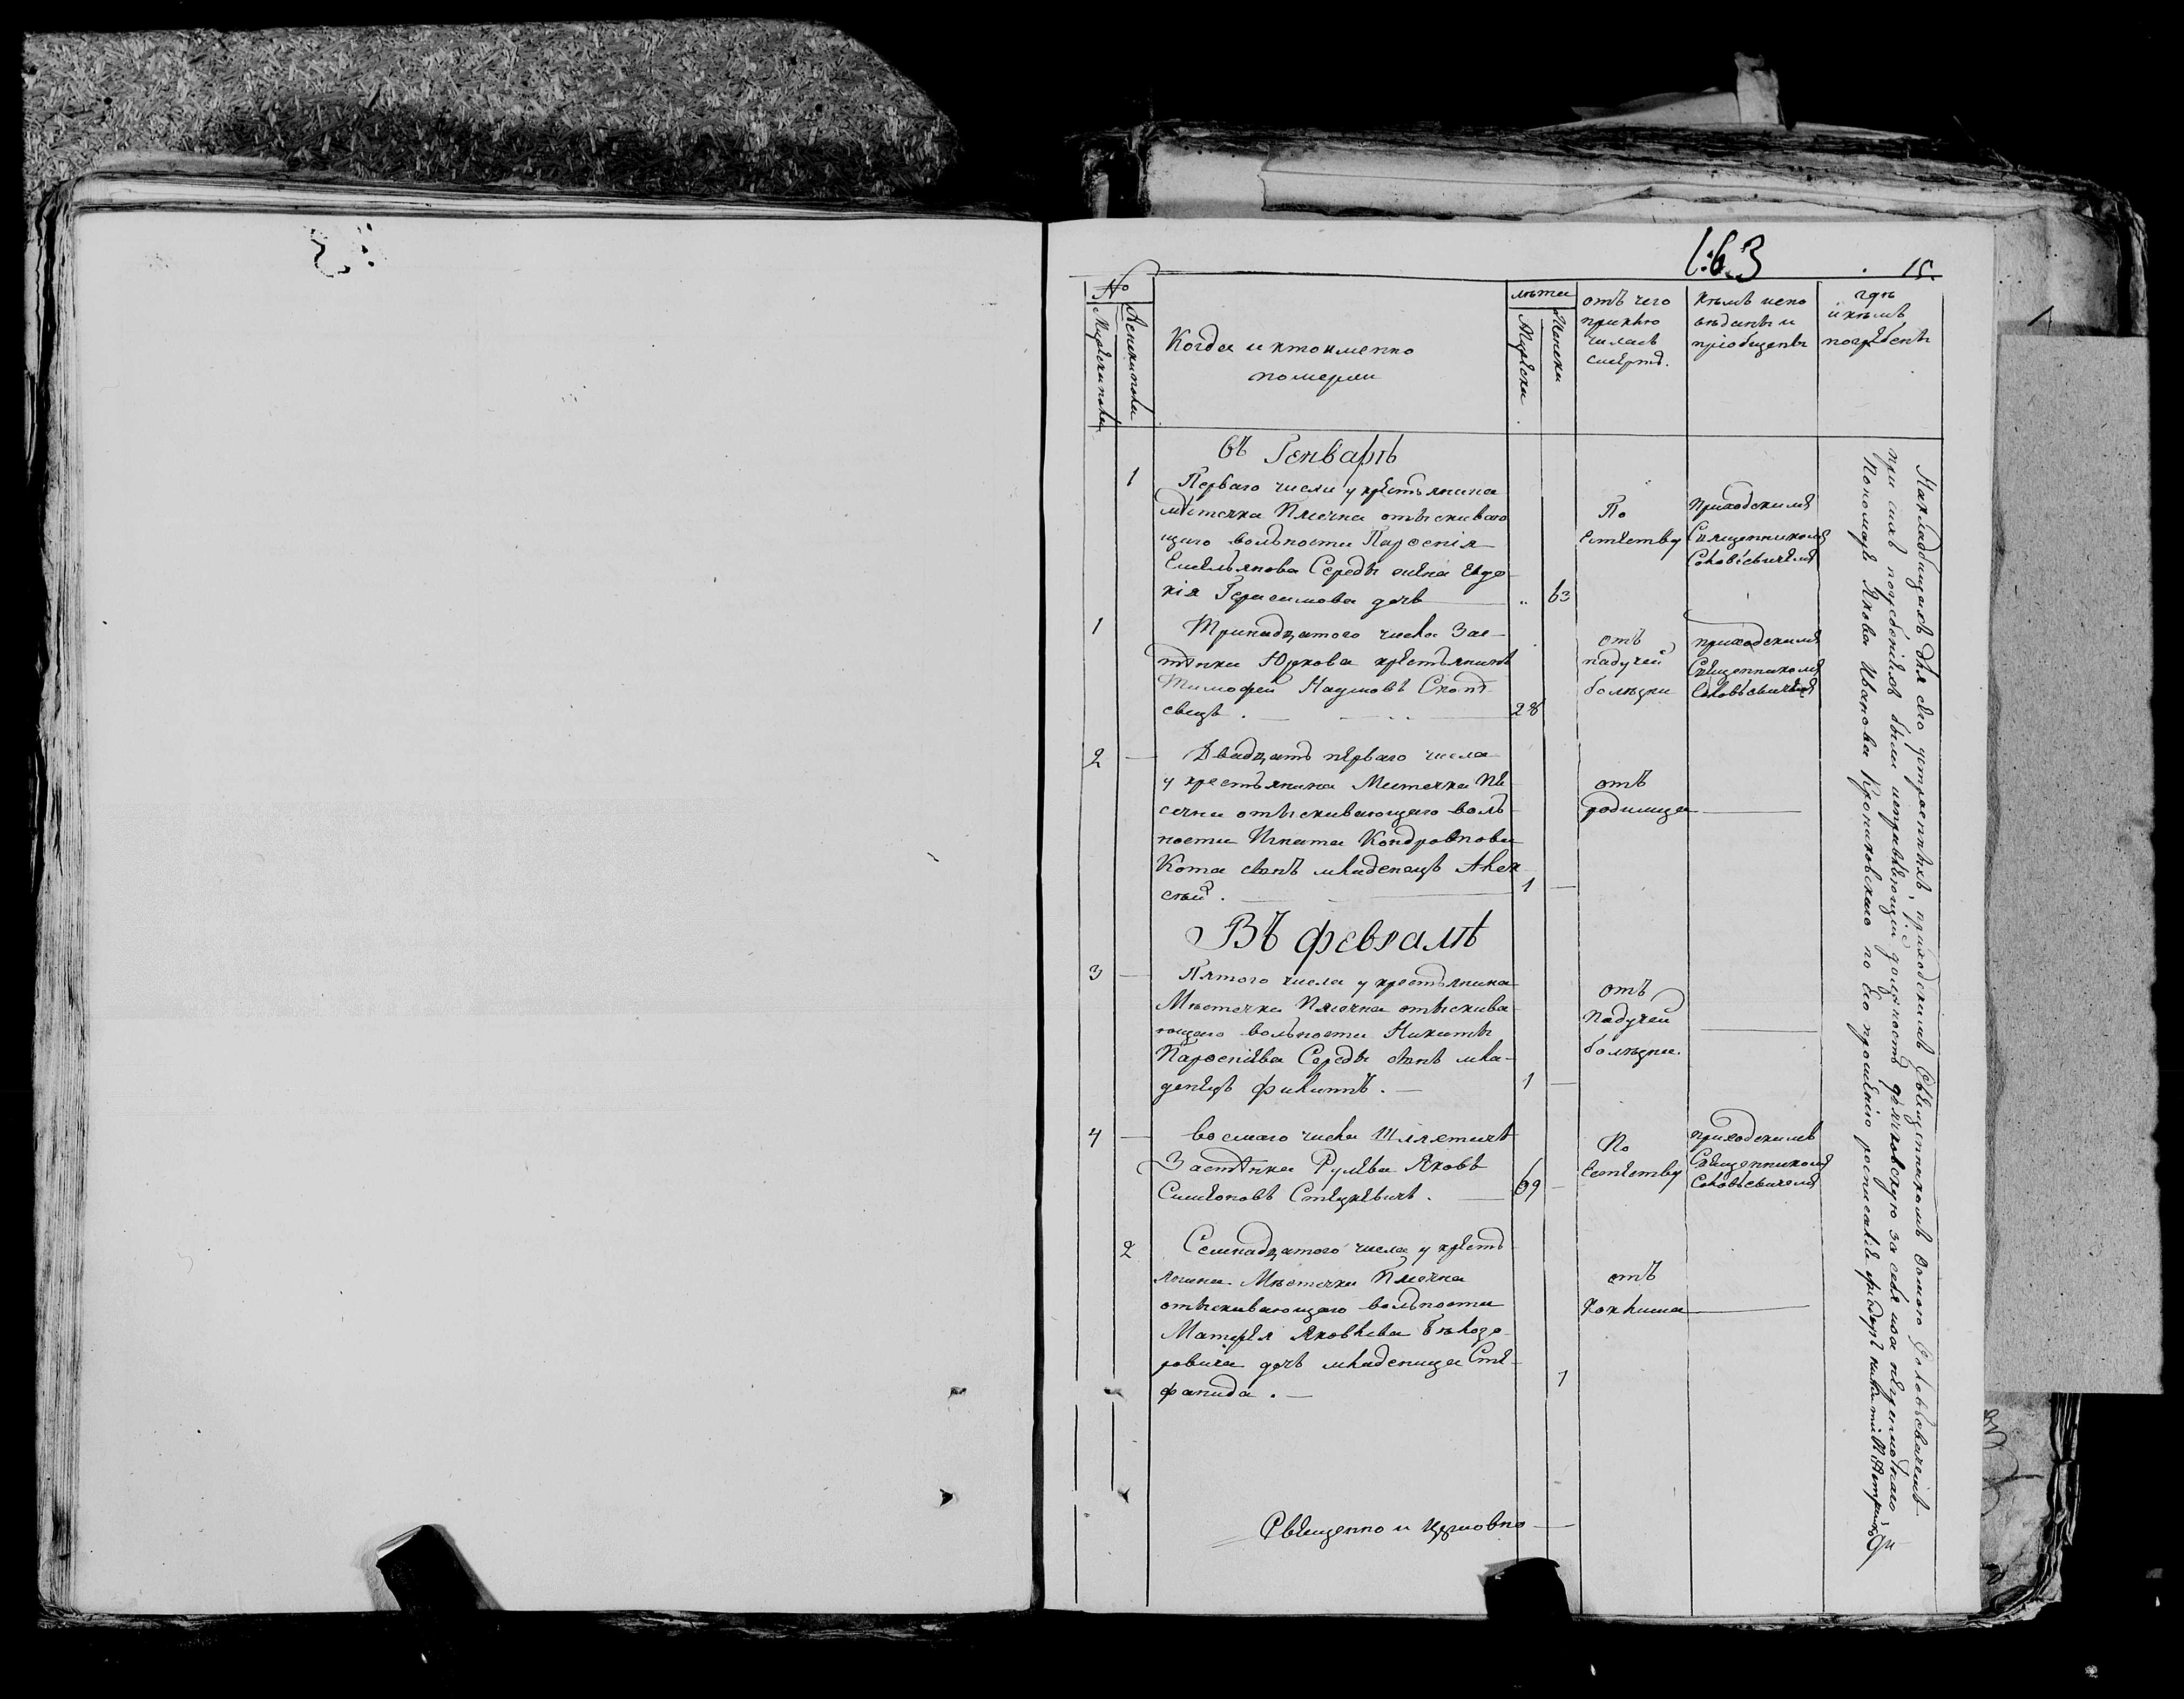 163
15.
№
Мужеска пола
Женска пола
Когда и кто именно
померли
лѣта
Мужески
Женски
отъ чего
приклю
чилась
смерть.
кѣмъ испо
вѣданы и
пріобщены
гдѣ
и кѣмъ
погребены
въ Генварѣ
1
Перваго числа у крестьянина
мѣстечка Плѣчна отыскиваю
щаго вольности Парѳенія
Емельянова Середы жена Евдо
кія Герасимова дочь
„ 63
По
Естеству
приходскимъ
Священникомъ
Соловьевичемъ
1
Тринадцатого числа Зас
тѣнка Юркова крестьянинъ
Тимофей Наумовъ
28
отъ
падучей
болѣзни
приходскимъ
Священникомъ
Соловьевичемъ
2
Двадцать перваго числа
у крестьянина Местечка
отыскивающаго воль
ности Игната Кондратова
Кота сынъ младенецъ Алек
сѣй.
1
отъ
родимца
Въ февралѣ
3
Пятого числа у крестьянина
Мѣстечка отыскива
ющаго вольности Никиты
Парѳеніева Середы сынъ мла
денецъ Филиппъ.
1
отъ
Падучей
болѣзни.
4
восмаго числа Шляхтичъ
Застѣнка Рулева Яковъ
Симеоновъ Стецкевичъ.
69
По
Естеству
приходскимъ
Священникомъ
Соловьевичемъ
2
Семнадцатого числа у кресть
янина Мѣстечка
отыскивающаго вольности
Матфея Яковлева Бѣлозо
ровича дочь младеница Сте
фанида.
1
отъ
Коклюша
На кладбищахъ для сего устроенныхъ, приходскимъ Священникомъ Фомою Соловьевичемъ
при семъ погребеніи были исправляющій должность дьячковскую за себя и за неграмотнаго
Пономаря Якова Иванова Крониковскаго по его прошенію росписался
Священно и церковно